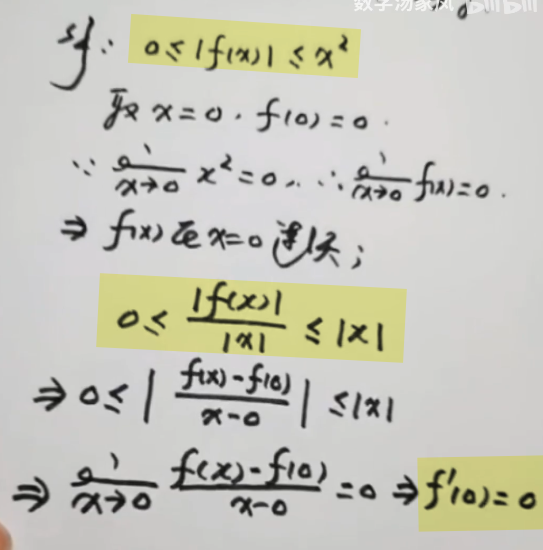 数学汤家凤
bilibili
解: ∵ 0 ≤ |f(x)| ≤ x²
取 x = 0, f(0) = 0.
∵ lim x→0 x² = 0, ∴ lim x→0 f(x) = 0.
⇒ f(x) 在 x = 0 连续;
0 ≤ |f(x)| / |x| ≤ |x|
⇒ 0 ≤ | (f(x) - f(0)) / (x - 0) | ≤ |x|
⇒ lim x→0 (f(x) - f(0)) / (x - 0) = 0 ⇒ f'(0) = 0